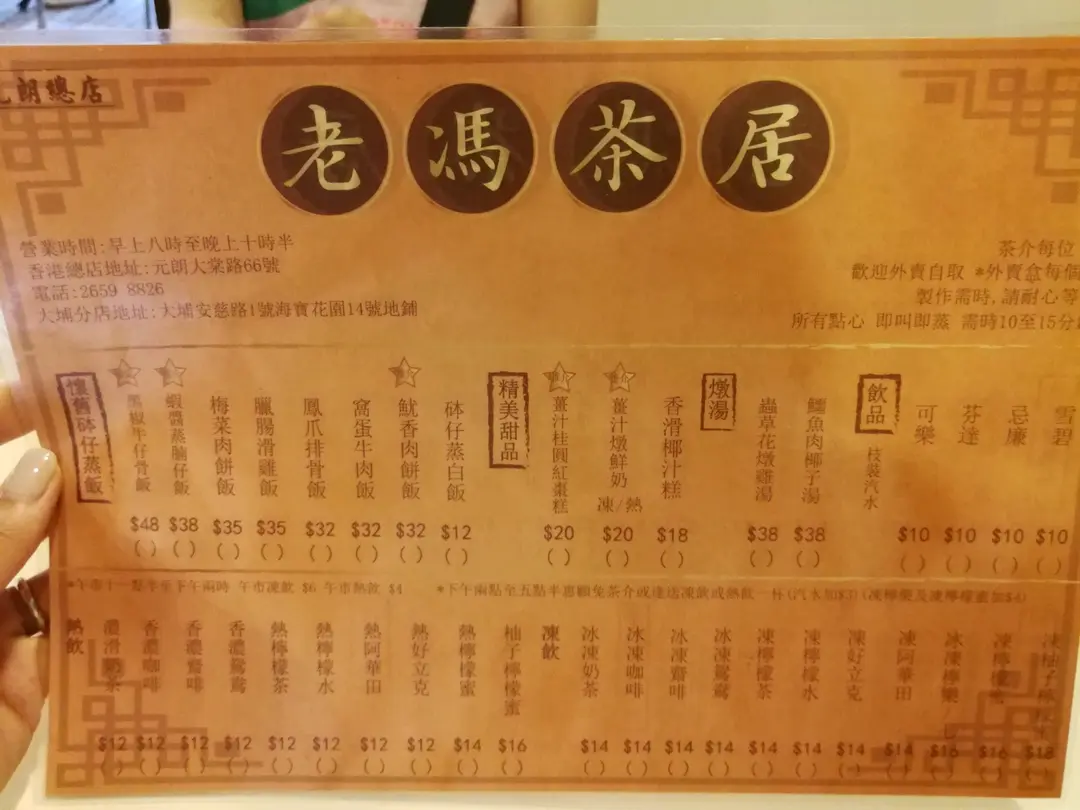 朗總店
老馮茶居
營業時間:早上八時至晚上十時半
香港總店地址:元朗大棠路66號
電話:2659 8826
大埔分店地址:大埔安慈路1號海寶花園14號地鋪
茶介每位
歡迎外賣自取 *外賣盒每個
製作需時,請耐心等
所有點心 即叫即蒸 需時10至15分
懷舊砵仔蒸飯
黑椒牛仔骨飯 $48 ( )
蝦醬蒸腩仔飯 $38 ( )
梅菜肉餅飯 $35 ( )
臘腸滑雞飯 $35 ( )
鳳爪排骨飯 $32 ( )
窩蛋牛肉飯 $32 ( )
魷香肉餅飯 $32 ( )
砵仔蒸白飯 $12 ( )
精美甜品
薑汁桂圓紅棗糕 $20 ( )
薑汁燉鮮奶 凍/熱 $20 ( )
香滑椰汁糕 $18 ( )
燉湯
蟲草花燉雞湯 $38 ( )
鱷魚肉椰子湯 $38 ( )
飲品
枝裝汽水
可樂 $10 ( )
芬達 $10 ( )
忌廉 $10 ( )
雪碧 $10 ( )
*午市十一點半至下午兩時 午市凍飲 $6 午市熱飲 $4
*下午兩點至五點半惠顧免茶介或送凍飲或熱飲一杯(汽水加$3)(凍檸樂及凍檸檬蜜加$4)
熱飲
濃滑奶茶 $12 ( )
香濃咖啡 $12 ( )
香濃齋啡 $12 ( )
香濃鴛鴦 $12 ( )
熱檸檬茶 $12 ( )
熱檸檬水 $12 ( )
熱阿華田 $12 ( )
熱好立克 $12 ( )
熱檸檬蜜 $14 ( )
柚子檸檬蜜 $16 ( )
凍飲
冰凍奶茶 $14 ( )
冰凍咖啡 $14 ( )
冰凍齋啡 $14 ( )
冰凍鴛鴦 $14 ( )
凍檸檬茶 $14 ( )
凍檸檬水 $14 ( )
凍好立克 $14 ( )
凍阿華田 $14 ( )
冰凍檸樂 $16 ( )
凍檸檬 $16 ( )
凍柚子檸檬 $18 ( )